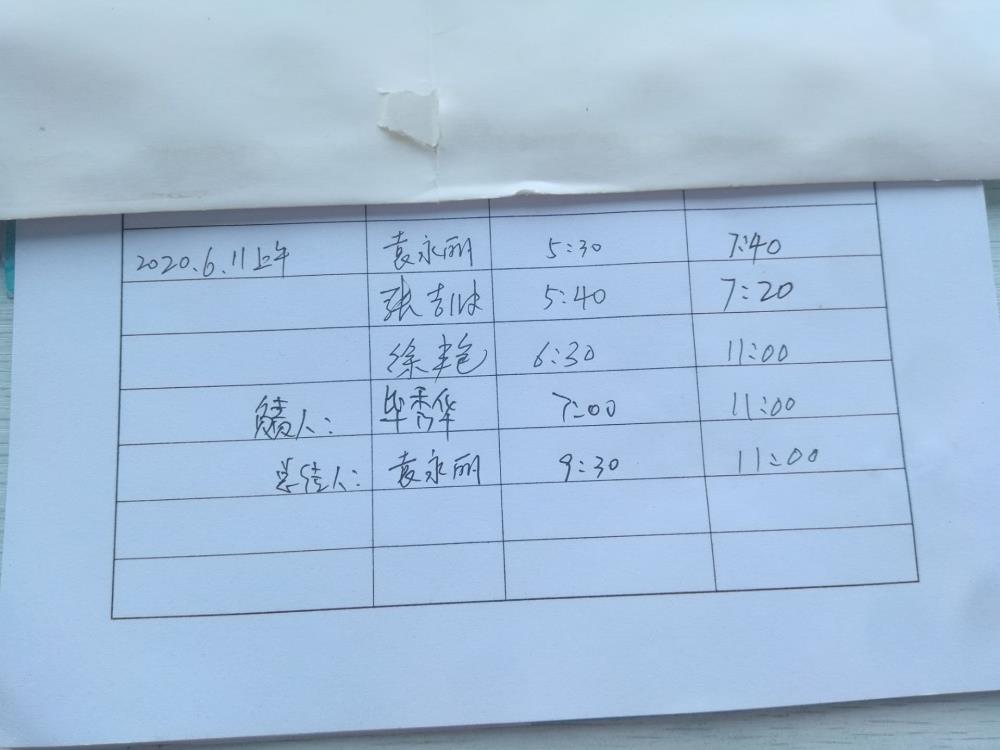 2020.6.11上午 袁永丽 5:30 7:40
张吉 5:40 7:20
徐艳 6:30 11:00
人: 毕秀华 7:00 11:00
总结人: 袁永丽 9:30 11:00